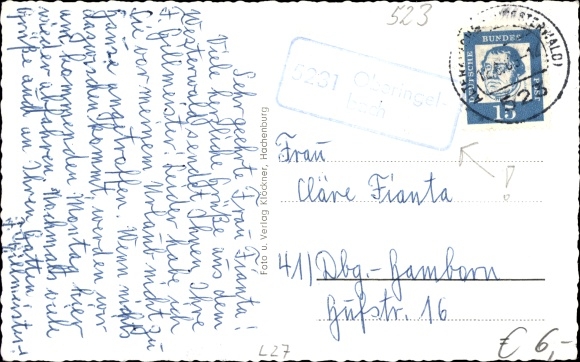 523
5231 Oberingel-
bach
DEUTSCHE BUNDESPOST
15
Sehr geehrte Frau Fianta!
Viele herzliche Grüße aus dem
Westerwald sendet Ihnen, Ihre
F. Gillmeister! Leider habe ich
Sie vor meinem Urlaub nicht zu
Hause angetroffen. Wenn nichts
dazwischen kommt, werden wir
am kommenden Montag hier
wieder abfahren. Nochmals viele
Grüße auch an Ihren Gatten
F. Gillmeister
Foto u. Verlag Klöckner, Hachenburg
Frau
Cläre Fianta
!
41) Dbg.-Hamborn
Hufstr. 16
€ 6,-
L27